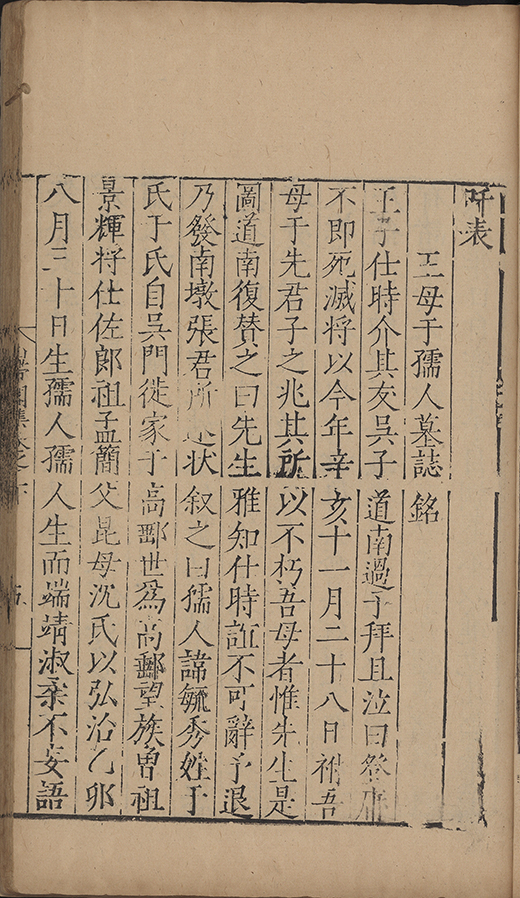 阡表
王母于孺人墓誌銘
王子仕時介其友吳子道南過予拜且泣曰
不即死滅將以今年辛亥十一月二十八日祔吾
母于先君子之兆其所以不朽吾母者惟先生是
圖道南復贊之曰先生雅知仕時誼不可辭予退
乃發南墩張君所狀叙之曰孺人諱毓秀姓于
氏于氏自吳門徙家于高郵世爲高郵望族曾祖
景輝將仕佐郎祖孟簡父昆母沈氏以弘治乙卯
八月三十日生孺人孺人生而端靖淑柔不妄語